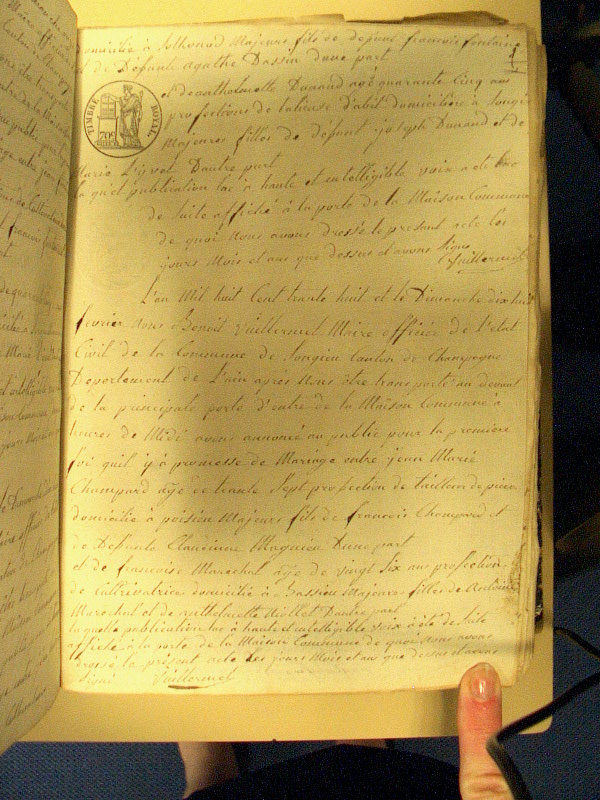 domicilié à Sothonod Majeur fils de defunt francois fontaine
et de Défunte agathe Dassin dune part
et de catholarette Dunand agé quarante Cinq ans
profection de tailleuse D'abit domiciliere à Songieu
Majeures filles de defunt joseph Dunand et de
Marie Dautre part
la quel publication lue à haute et intelligible voix a été
de Suite affiché à la porte de la Maison Commune
de quoi Nous avons dressé le présent acte les
jours Mois et an que dessus et avons Signé
Vuillermet
TIMBRE ROYAL
L'an Mil huit Cent trente huit et le Dimanche dix huit
fevrier Nous Benoit Vuillermet Maire officier de l'etat
Civil de la Commune de Songieu Canton de Champagne
Departement de L'ain après Nous être transporté au devant
de la principale porte d'entre de la Maison Commune à
heures de Midé avons annoncé au public pour la première
foi quil y à promesse de Mariage entre jean Marie
Champard age de trente Sept profection de tailleur de pierre
domicilié à Majeur fils de francois Champard et
de Defunte Claudinne Magnien Dune part
et de francoise Marechal age de vingt Six ans profection
de Cultivatrice domicilié à Bassieu Majeures filles de Antoine
Marechal et de Dautre part
laquelle publication lue à haute et intelligible voix à été de Suite
affiché à la porte de la Maison Commune de quoi nous avons
dressé le présent acte les jours Mois et an que dessus et avons
Signé Vuillermet